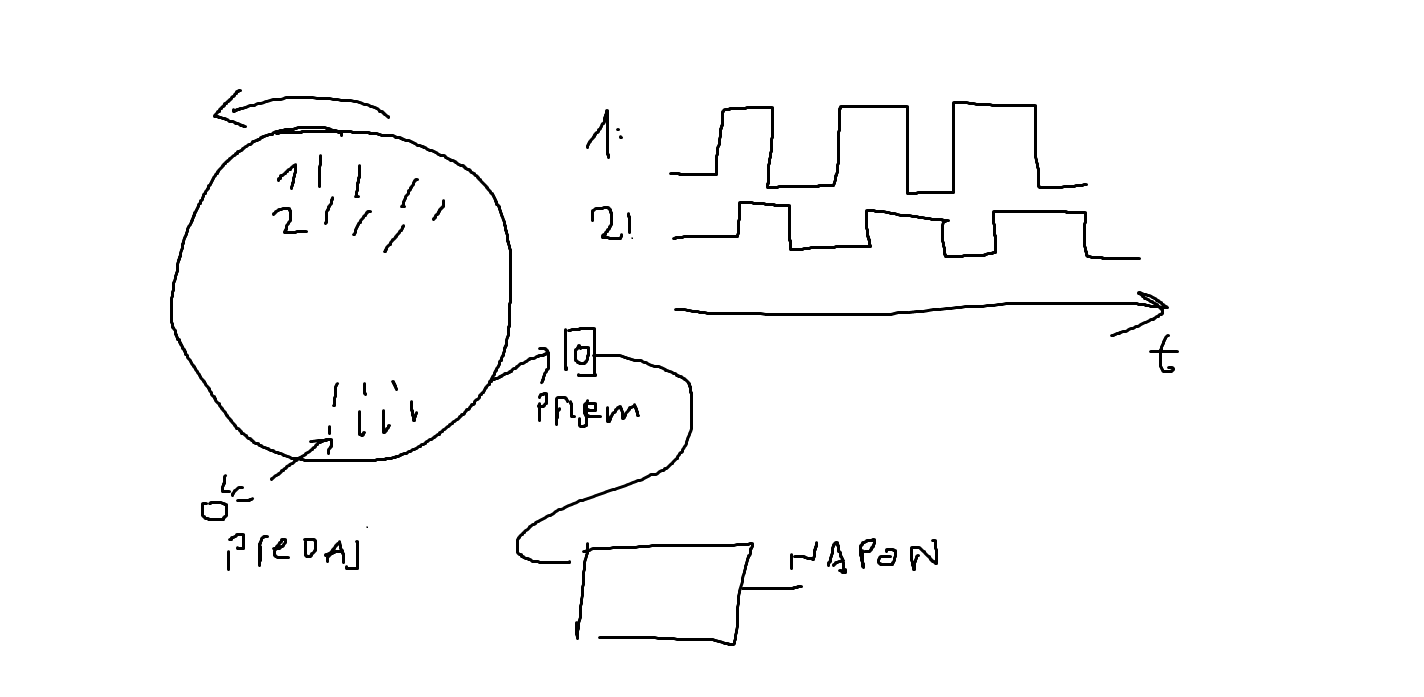 1:
2:
1
2
t
Prijem
PreDAJ
NAPON